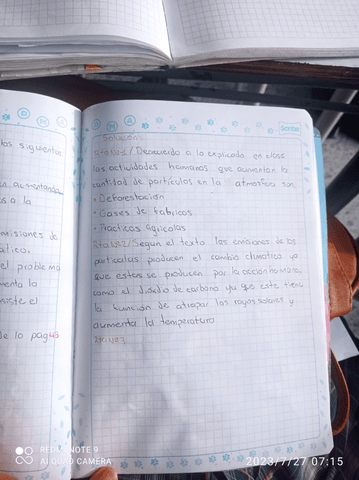 los siguientes
aumentando
os a la
misiones de
ático.
el problema
menta la
nsiste el
de la pagu3
D M A
Scribe
Solución
Rta N°1/ Deacuerdo a lo explicado en clase
las actividades humanas que aumentan la
cantidad de particulas en la atmosfera son
• Deforestación
• Gases de fabricas
• Practicas agricolas
Rta N°2/ Segun el texto las emisiones de las
particulas producen el cambio climatico ya
que estas se producen por la acción humana
como el dióxido de carbono ya que este tiene
la función de atrapar los rayos solares y
aumenta la temperatura
REDMI NOTE 9
AI QUAD CAMERA
2023/7/27 07:15